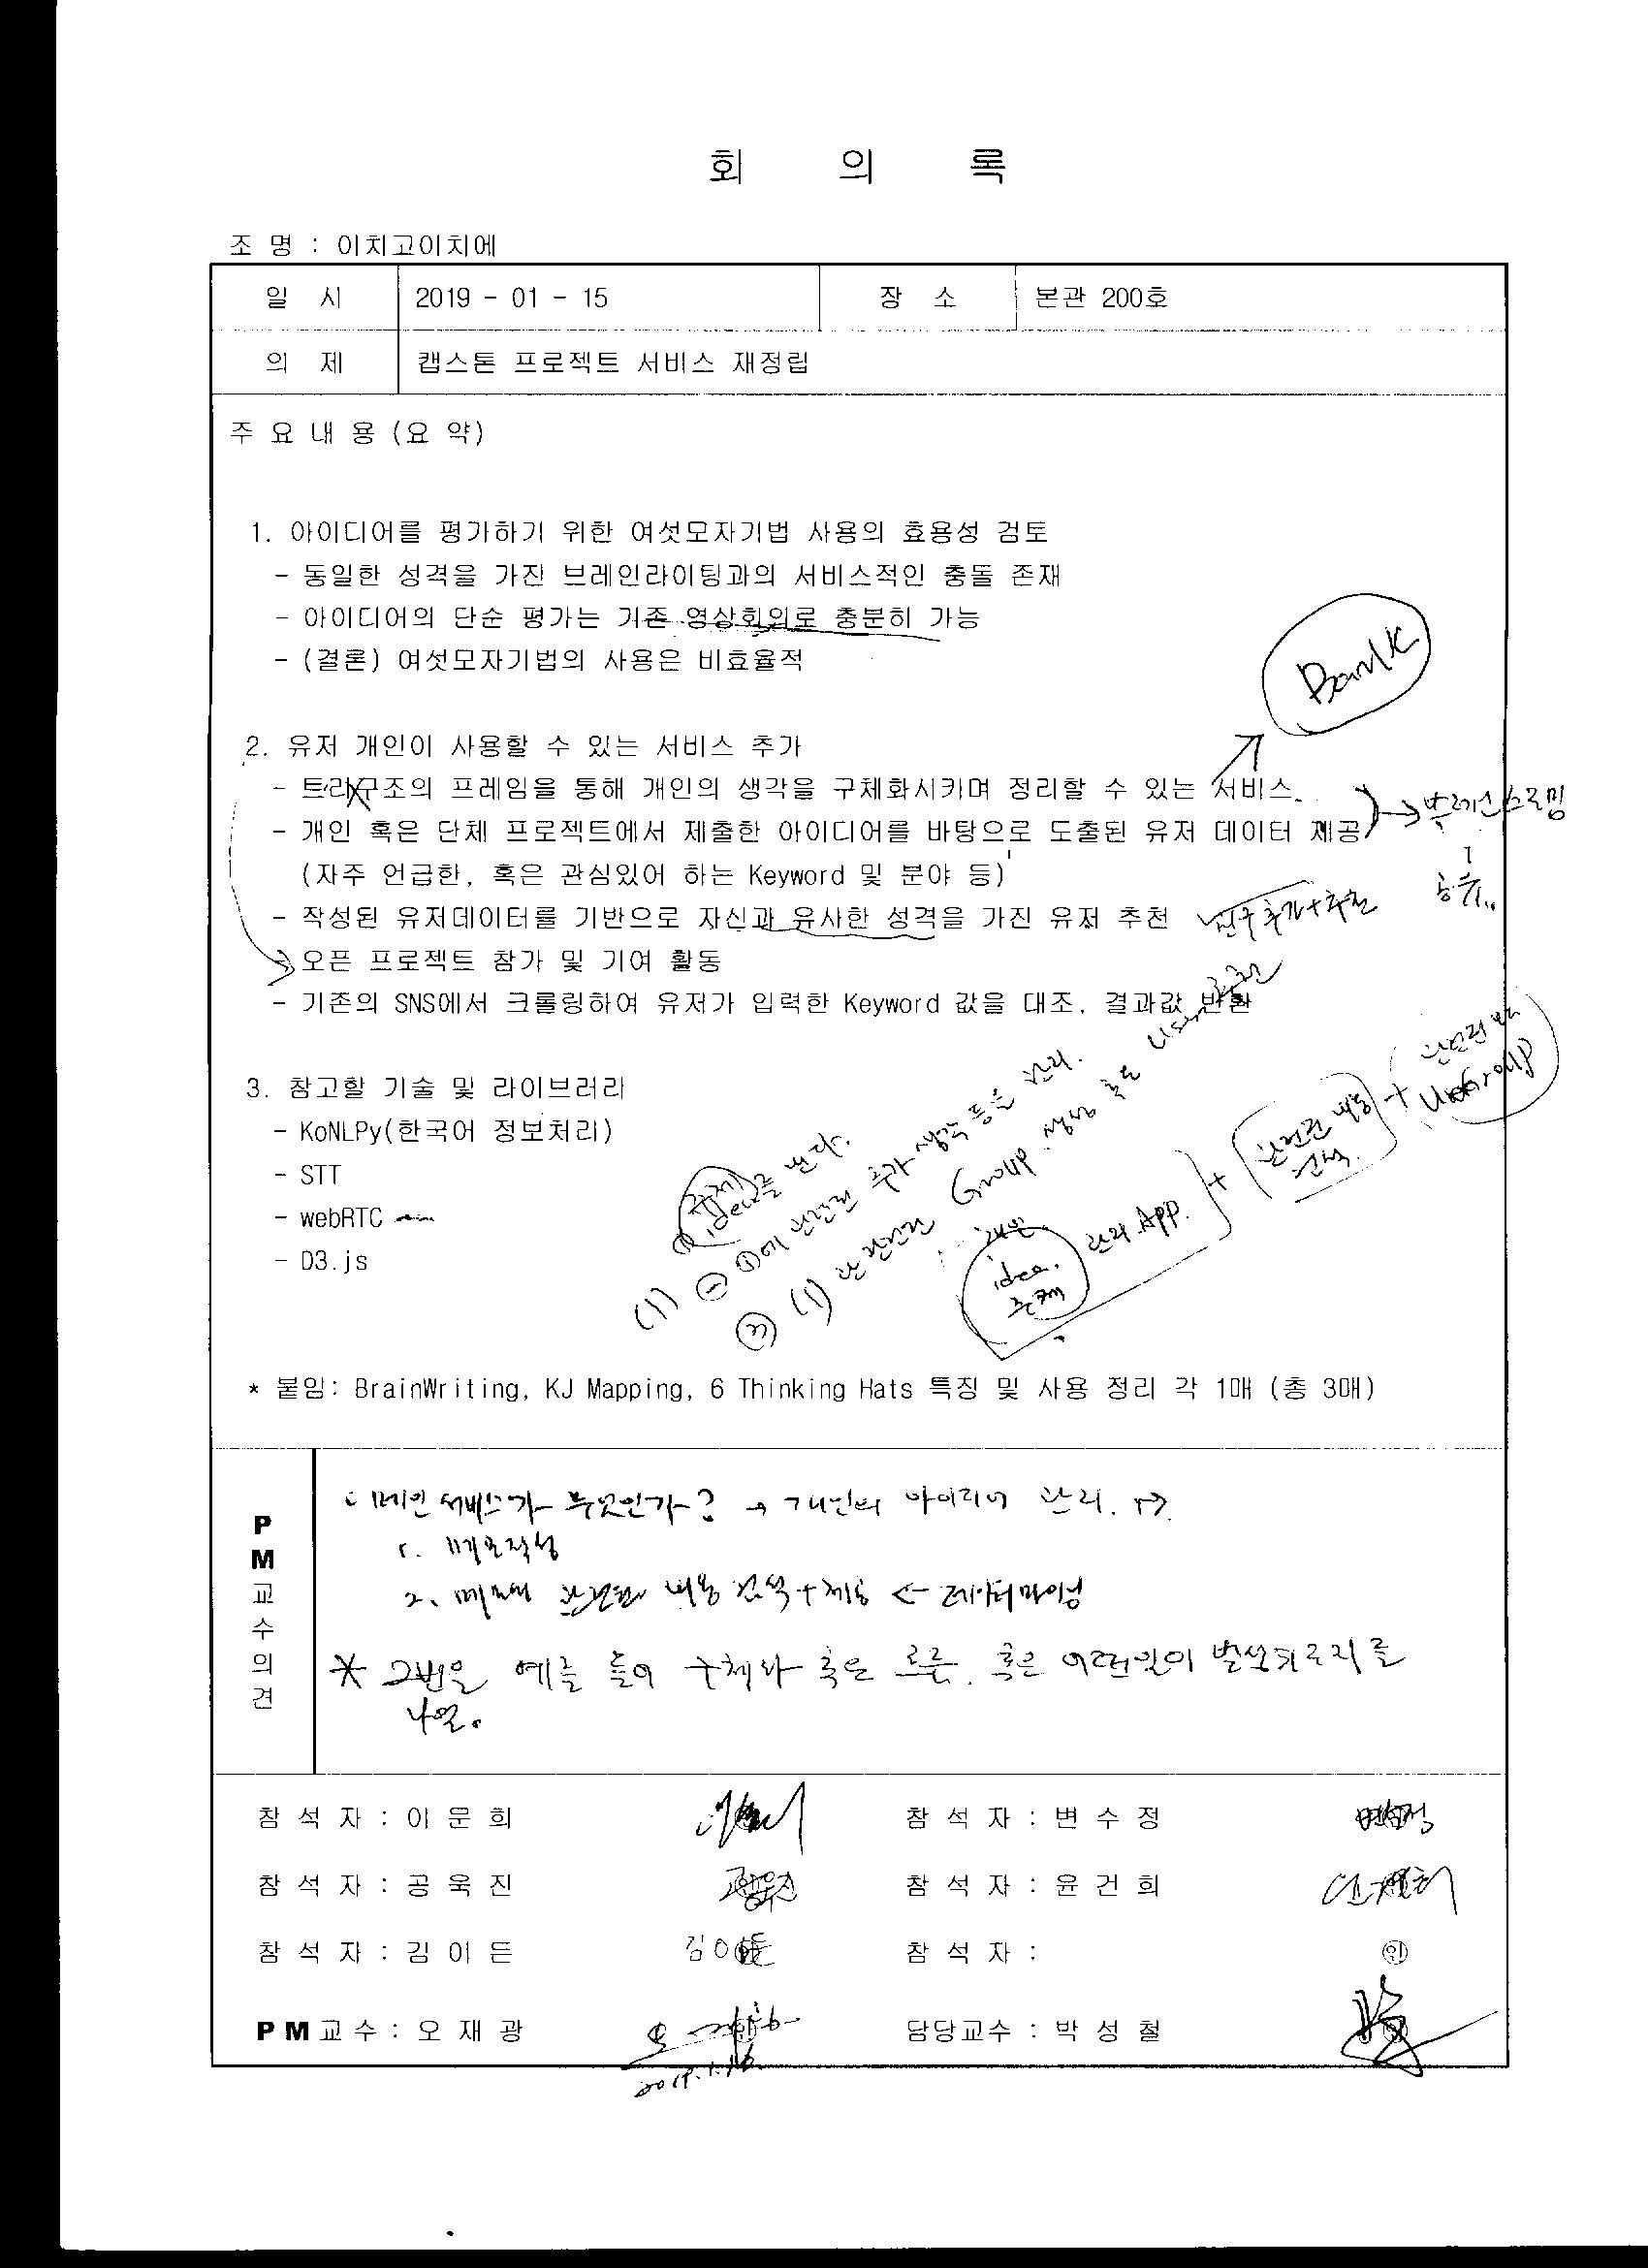 회 의 록
조 명 : 이치고이치에
일 시 2019 - 01 - 15 장 소 본관 200호
의 제 캡스톤 프로젝트 서비스 재정립
주 요 내 용 (요 약)
1. 아이디어를 평가하기 위한 여섯모자기법 사용의 효용성 검토
- 동일한 성격을 가진 브레인라이팅과의 서비스적인 충돌 존재
- 아이디어의 단순 평가는 기존 영상회의로 충분히 가능
- (결론) 여섯모자기법의 사용은 비효율적
Bank
2. 유저 개인이 사용할 수 있는 서비스 추가
- 트리구조의 프레임을 통해 개인의 생각을 구체화시키며 정리할 수 있는 서비스
→ 브레인스토밍
- 개인 혹은 단체 프로젝트에서 제출한 아이디어를 바탕으로 도출된 유저 데이터 제공
(자주 언급한, 혹은 관심있어 하는 Keyword 및 분야 등)
공유..
- 작성된 유저데이터를 기반으로 자신과 유사한 성격을 가진 유저 추천
친구 추가+추천
- 오픈 프로젝트 참가 및 기여 활동
- 기존의 SNS에서 크롤링하여 유저가 입력한 Keyword 값을 대조, 결과값 반환
3. 참고할 기술 및 라이브러리
- KoNLPy(한국어 정보처리)
- STT
- webRTC
- D3.js
(1) ① idea를 낸다.
주제
② ①에 관련된 추가 생각 등을 관리.
(2) (1)과 관련된 Group 생성 혹은 User 추천
개인
idea. 주제 관리 App. + 관련된 내용 검색. + 관련된 User Group
* 붙임: BrainWriting, KJ Mapping, 6 Thinking Hats 특징 및 사용 정리 각 1매 (총 3매)
PM교수의견
메인 서비스가 무엇인가? → 개인의 아이디어 관리.
1. 메모작성
2. 메모에 관련된 내용 검색+제공 ← 데이터마이닝
* 2번은 예를 들어 구체화 혹은 혹은 어떤일이 발생되는지를
나열.
참 석 자 : 이 문 희 참 석 자 : 변 수 정 변수정
참 석 자 : 공 욱 진 공욱진 참 석 자 : 윤 건 희 윤건희
참 석 자 : 김 이 든 김이든 참 석 자 : 인
PM교 수 : 오 재 광 담당교수 : 박 성 철
2019.1.16.